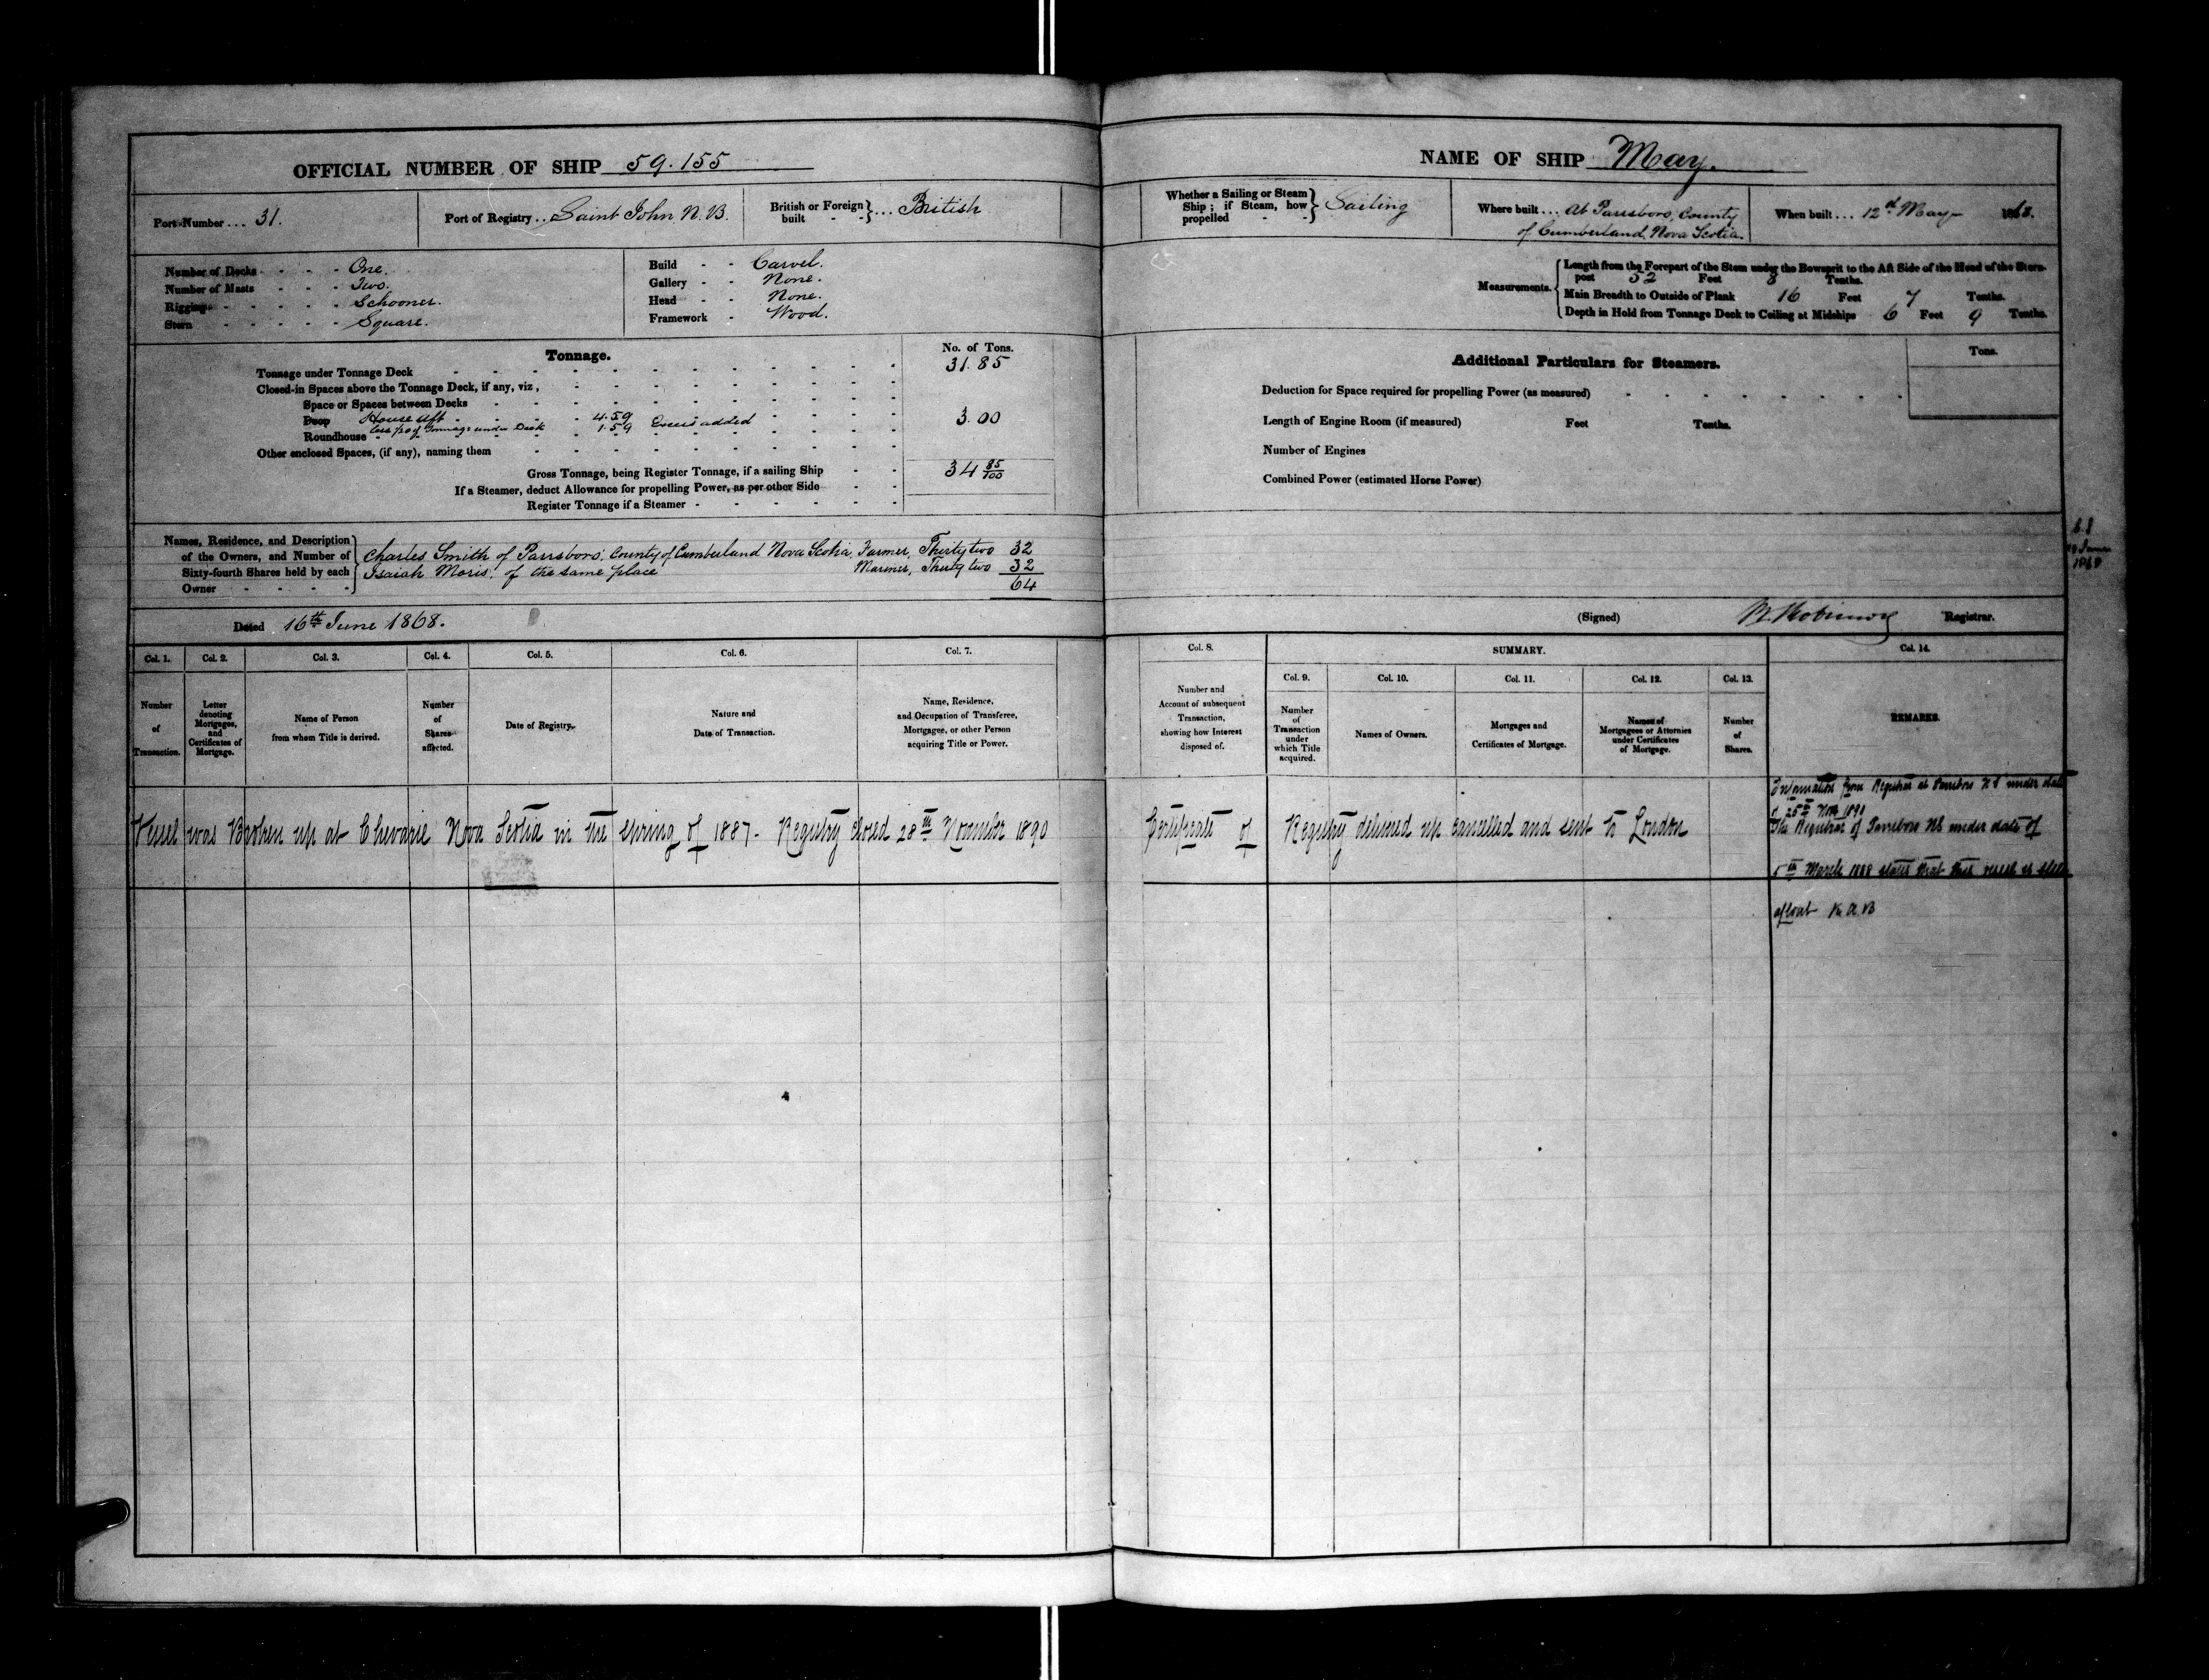 OFFICIAL NUMBER OF SHIP 59.155
Port Number ... 31.
Port of Registry ... Saint John N. B.
British or Foreign built - - } ... British
Number of Decks - - - - One.
Number of Masts - - - - Two.
Rigging - - - - - Schooner.
Stern - - - - - Square.
Build - - Carvel.
Gallery - - None.
Head - - None.
Framework - Wood.
Tonnage.
No. of Tons.
Tonnage under Tonnage Deck 31.85
Closed-in Spaces above the Tonnage Deck, if any, viz,
Space or Spaces between Decks
Poop House aft 4.59
less p of Tonnage under Deck 1.59 Excess added 3.00
Roundhouse
Other enclosed Spaces, (if any), naming them
Gross Tonnage, being Register Tonnage, if a sailing Ship 34 85/100
If a Steamer, deduct Allowance for propelling Power, as per other Side
Register Tonnage if a Steamer
Names, Residence, and Description of the Owners, and Number of Sixty-fourth Shares held by each Owner
Charles Smith of Parrsboro', County of Cumberland Nova Scotia, Farmer, Thirty two 32
Isaiah Moris, of the same place Mariner, Thirty two 32
64
Dated 16th June 1868.
Col. 1. Col. 2. Col. 3. Col. 4. Col. 5. Col. 6. Col. 7.
Number of Transaction.
Letter denoting Mortgages, and Certificates of Mortgage.
Name of Person from whom Title is derived.
Number of Shares affected.
Date of Registry.
Nature and Date of Transaction.
Name, Residence, and Occupation of Transferee, Mortgagee, or other Person acquiring Title or Power.
Vessel was Broken up at Cheverie Nova Scotia in the Spring of 1887 - Registry closed 28th November 1890
NAME OF SHIP May.
Whether a Sailing or Steam Ship; if Steam, how propelled - - } Sailing
Where built ... At Parrsboro, County
of Cumberland, Nova Scotia.
When built ... 12th May 1868.
Measurements.
Length from the Forepart of the Stem under the Bowsprit to the Aft Side of the Head of the Stern-
post 52 Feet 8 Tenths.
Main Breadth to Outside of Plank 16 Feet 7 Tenths.
Depth in Hold from Tonnage Deck to Ceiling at Midships 6 Feet 9 Tenths.
Additional Particulars for Steamers.
Tons.
Deduction for Space required for propelling Power (as measured)
Length of Engine Room (if measured) Feet Tenths.
Number of Engines
Combined Power (estimated Horse Power)
June
(Signed) Registrar.
Col. 8. SUMMARY. Col. 14.
Col. 9. Col. 10. Col. 11. Col. 12. Col. 13.
Number and Account of subsequent Transaction, showing how Interest disposed of.
Number of Transaction under which Title acquired.
Names of Owners.
Mortgages and Certificates of Mortgage.
Names of Mortgagees or Attornies under Certificates of Mortgage.
Number of Shares.
REMARKS.
Certificate of Registry delivered up cancelled and sent to London
Information from Registrar at Parrsboro N S under date
of 25th Nov 1890
The Registrar of Parrsboro NS under date of
5th March 1888 states that this vessel is still
afloat